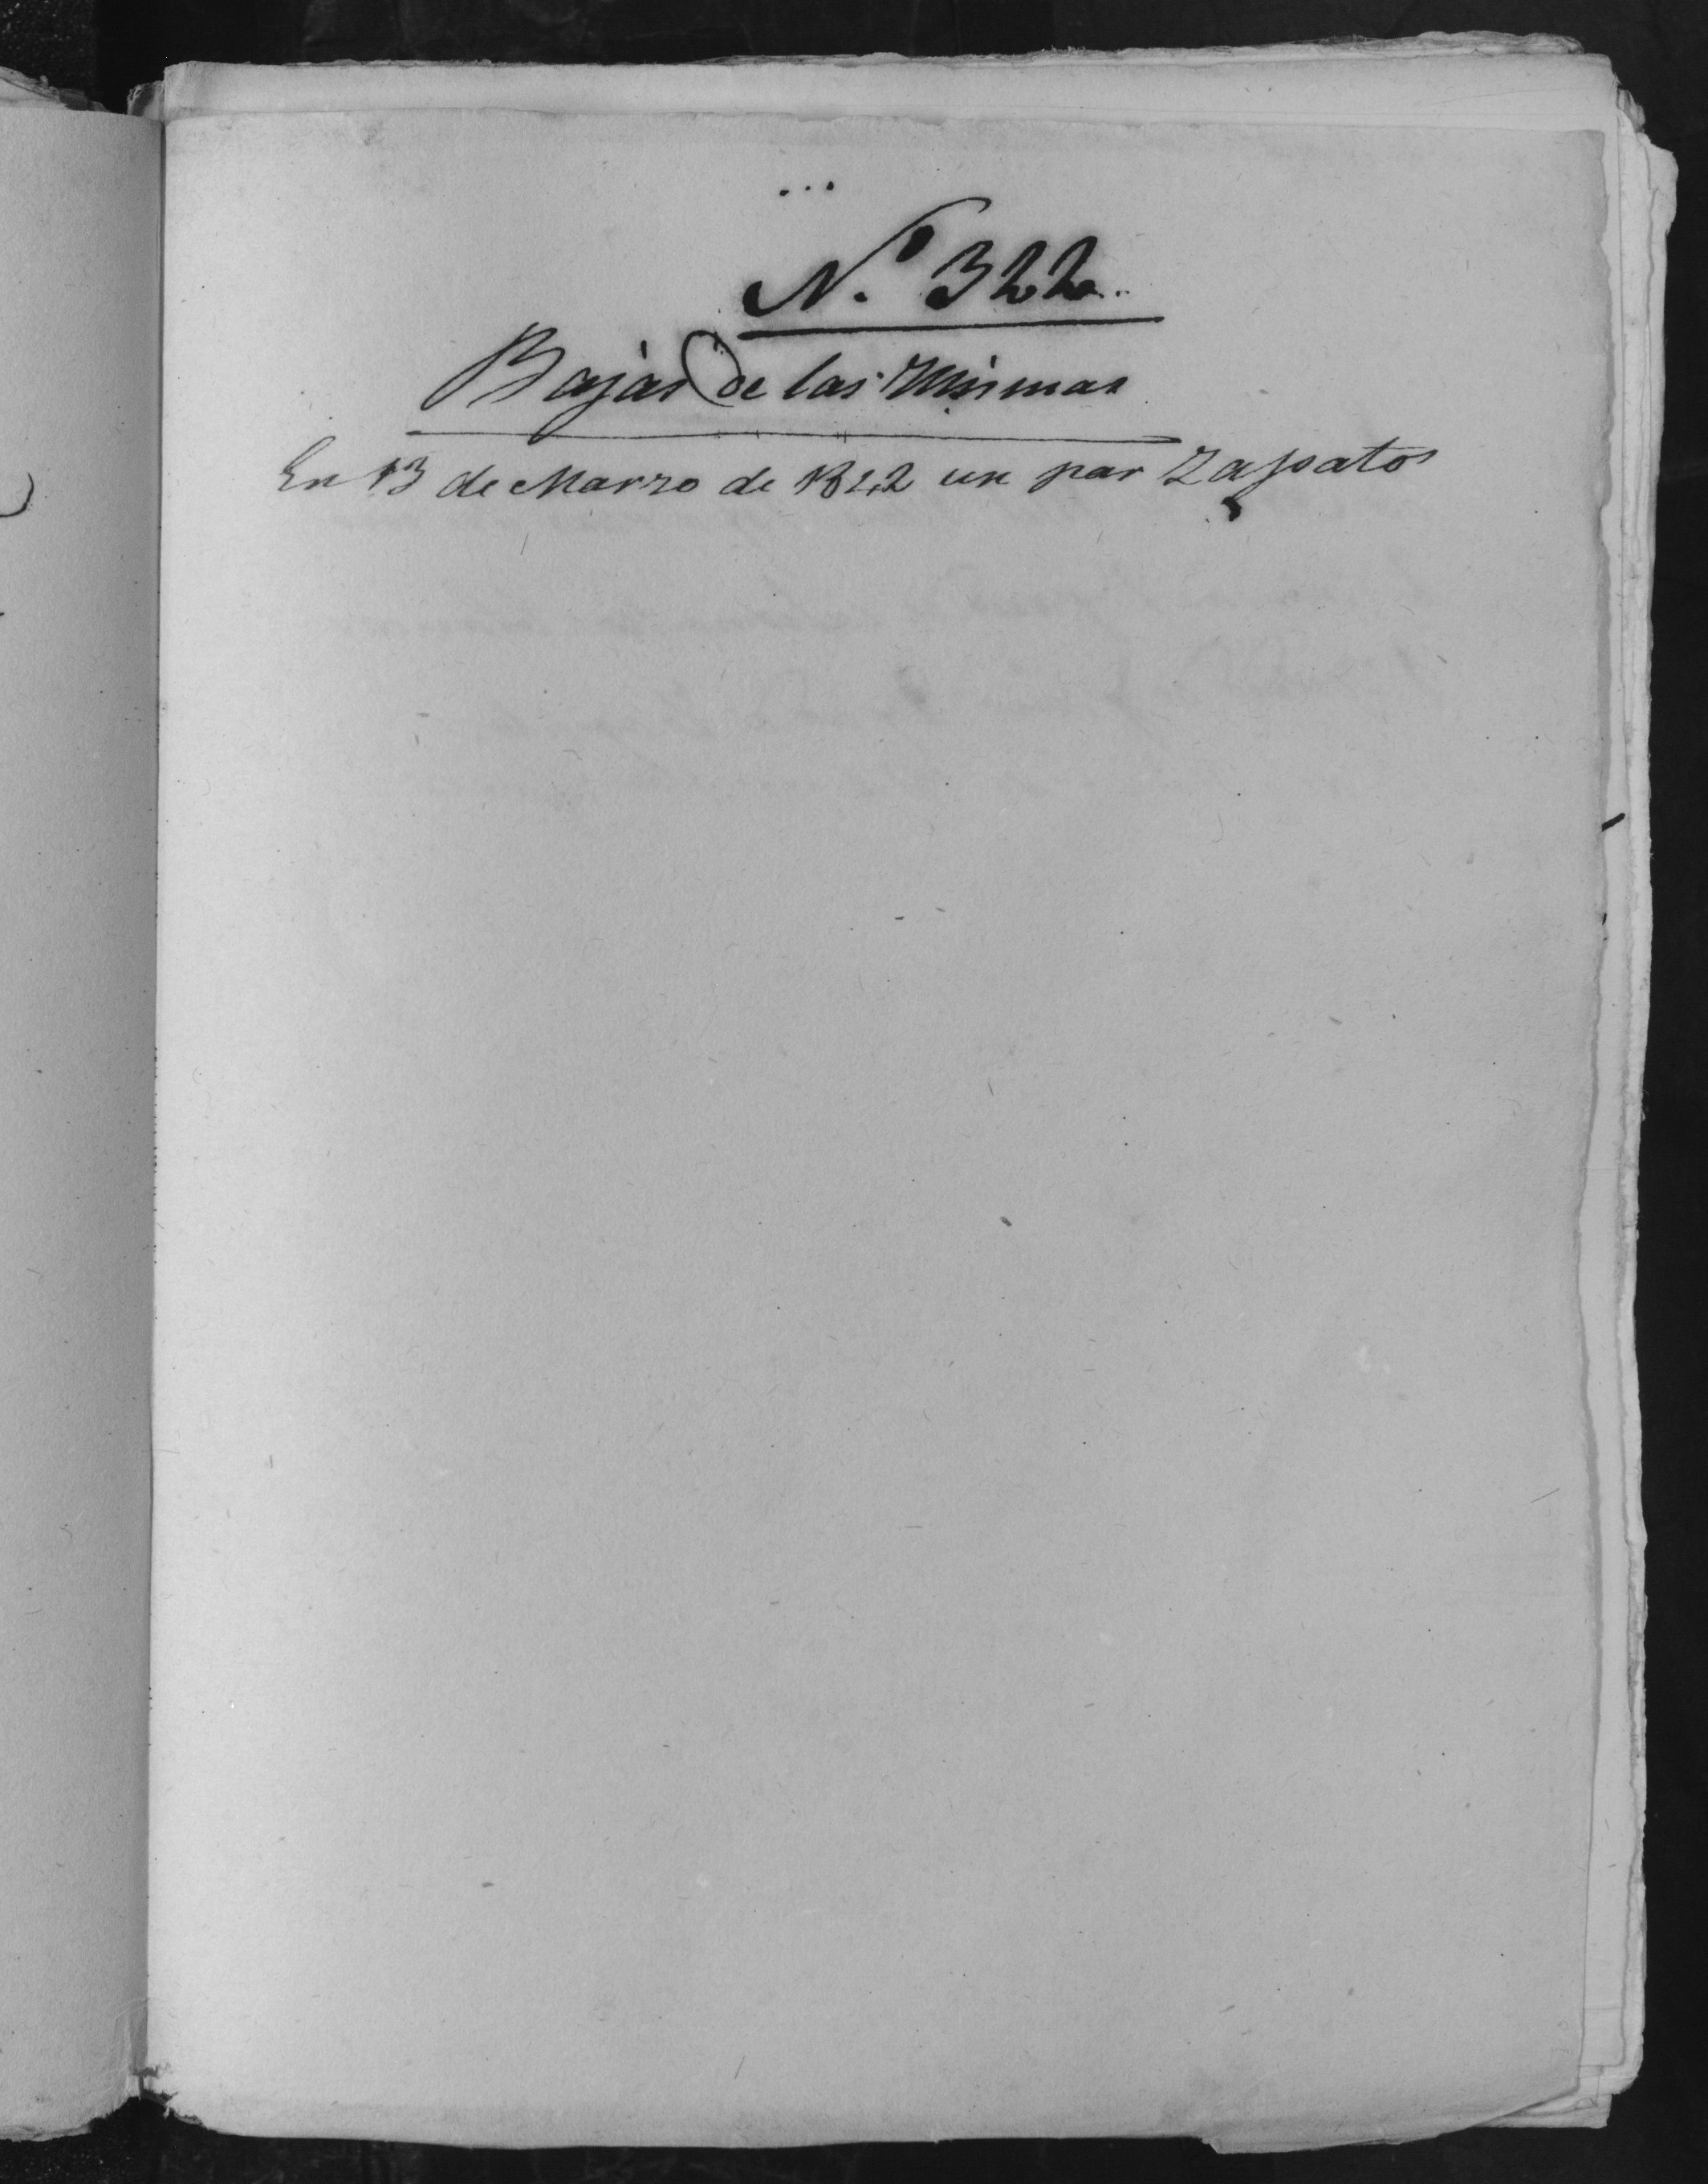 N.º 322
Bajas de las Mismas
En 13 de Marzo de 1822 un par Zapatos